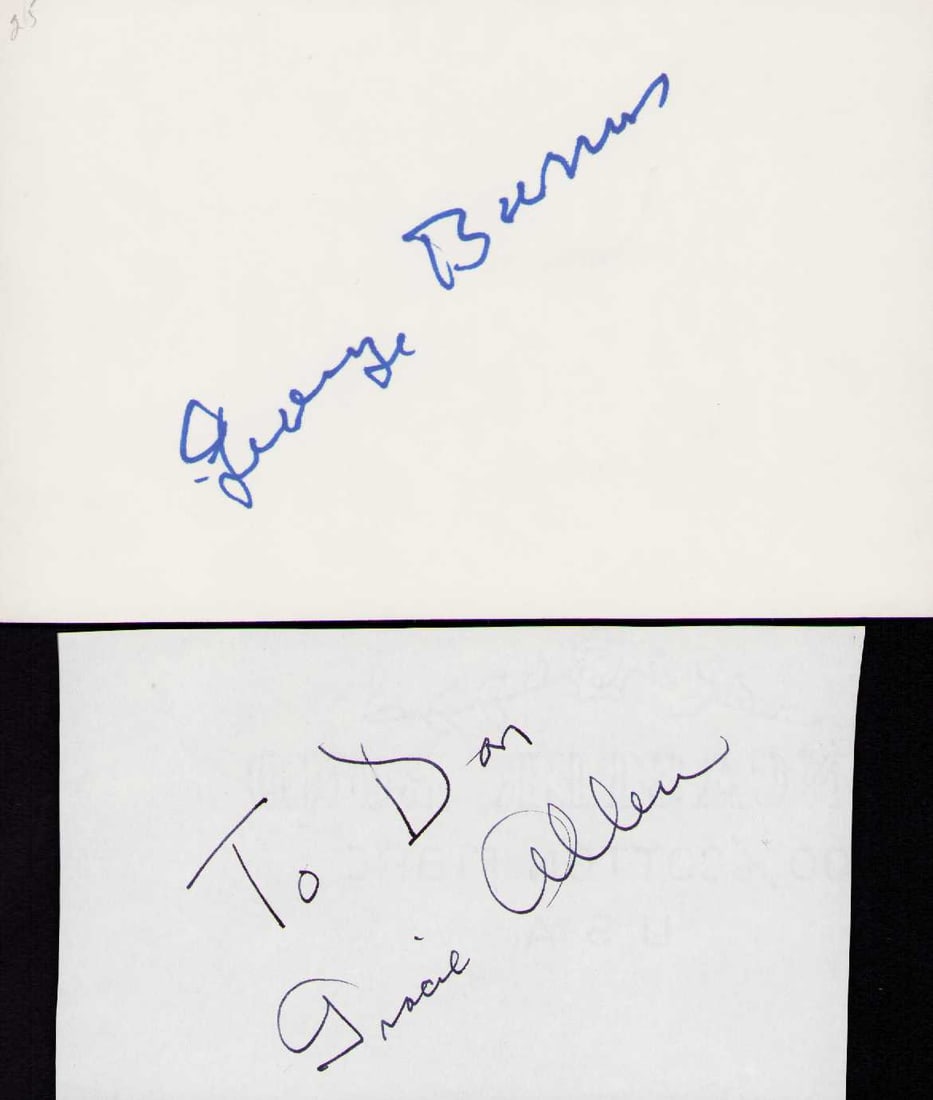 25
George Burns
To Don
Gracie Allen
U S A